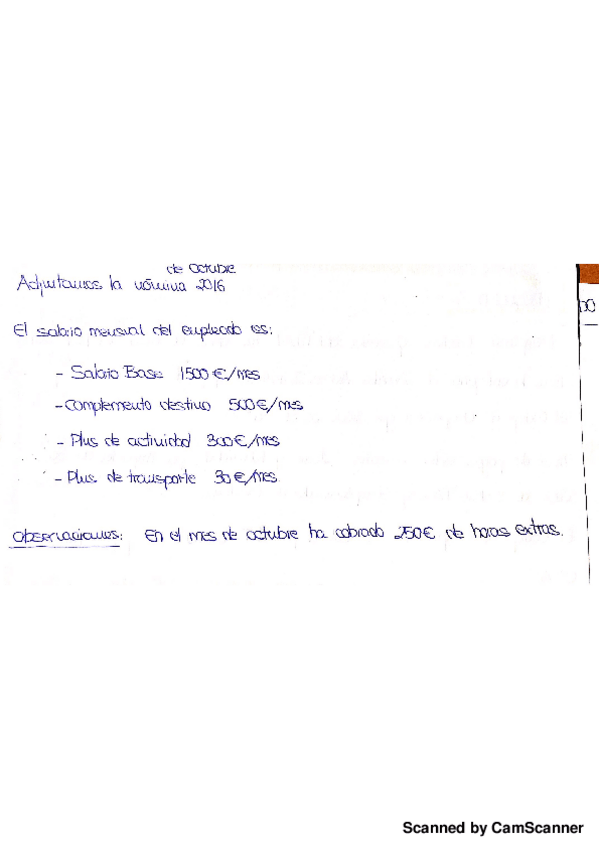 de octubre
Adjuntamos la nómina 2016
El salario mensual del empleado es:
- Salario Base 1500 €/mes
- Complemento destino 500 €/mes
- Plus de actividad 300 €/mes
- Plus de transporte 30 €/mes
Observaciones: En el mes de octubre ha cobrado 250€ de horas extras.
Scanned by CamScanner